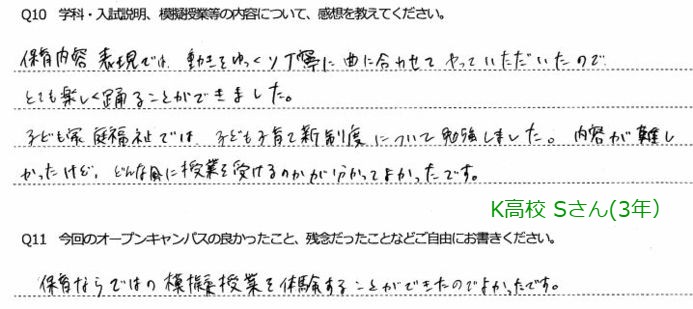 Q10 学科・入試説明、模擬授業等の内容について、感想を教えてください。
保育内容 表現では、動きをゆっくり丁寧に曲に合わせてやっていただいたので、
とても楽しく踊ることができました。
子ども家庭福祉では、子ども子育て新制度について勉強しました。内容が難し
かったけど、どんな風に授業を受けるのかが分かってよかったです。
K高校 Sさん(3年)
Q11 今回のオープンキャンパスの良かったこと、残念だったことなどご自由にお書きください。
保育ならではの模擬授業を体験することができたのでよかったです。